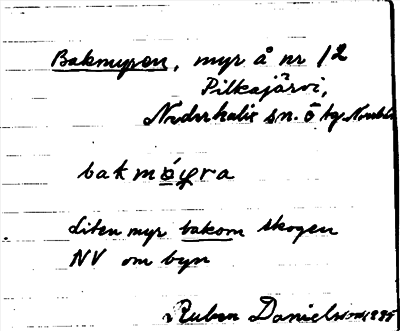 Bakmyran, myr å nr 12
Pilkajärvi,
Nederkalix sn. ö
bakmo̱y̨ra
Liten myr bakom skogen
NV om byn
Ruben Danielsson 1935